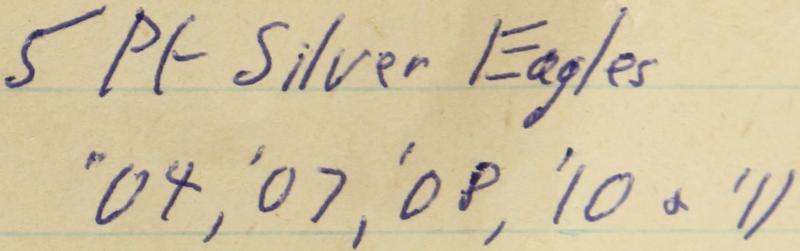 5 Pf Silver Eagles
'04, '07, '08, '10 & '11